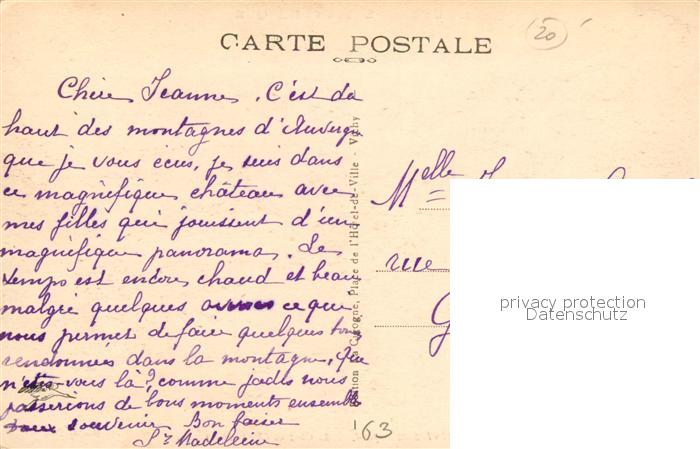 20
CARTE POSTALE
Chère Jeanne, C'est du
haut des montagnes d'Auvergne
que je vous écris, je suis dans
ce magnifique château avec
mes filles qui jouissent d'un
magnifique panorama. Le
temps est encore chaud et beau
malgré quelques ce que
nous permet de faire quelques bonnes
randonnées dans la montagne. Que
n'êtes vous là?, comme jadis nous
passerions de bons moments ensemble
souvenir Bon baiser
Sr Madeleine
Edition La Cigogne, Place de l'Hôtel-de-Ville - Vichy
Melle
rue
G
privacy protection
Datenschutz
163